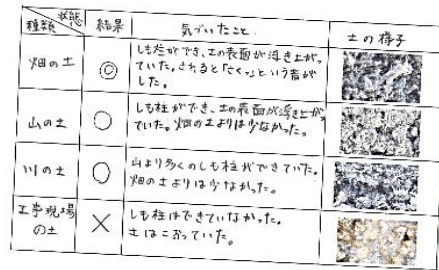 種類 状態 結果 気づいたこと 土の様子
畑の土 ◎ しも柱ができ、土の表面が浮き上がっ
ていた。さわると「さくっ」という音が
した。
山の土 ○ しも柱ができ、土の表面が浮き上がっ
ていた。畑の土よりは少なかった。
川の土 ○ 山より多くのしも柱ができていた。
畑の土よりは少なかった。
工事現場
の土 × しも柱はできていなかった。
土はこおっていた。